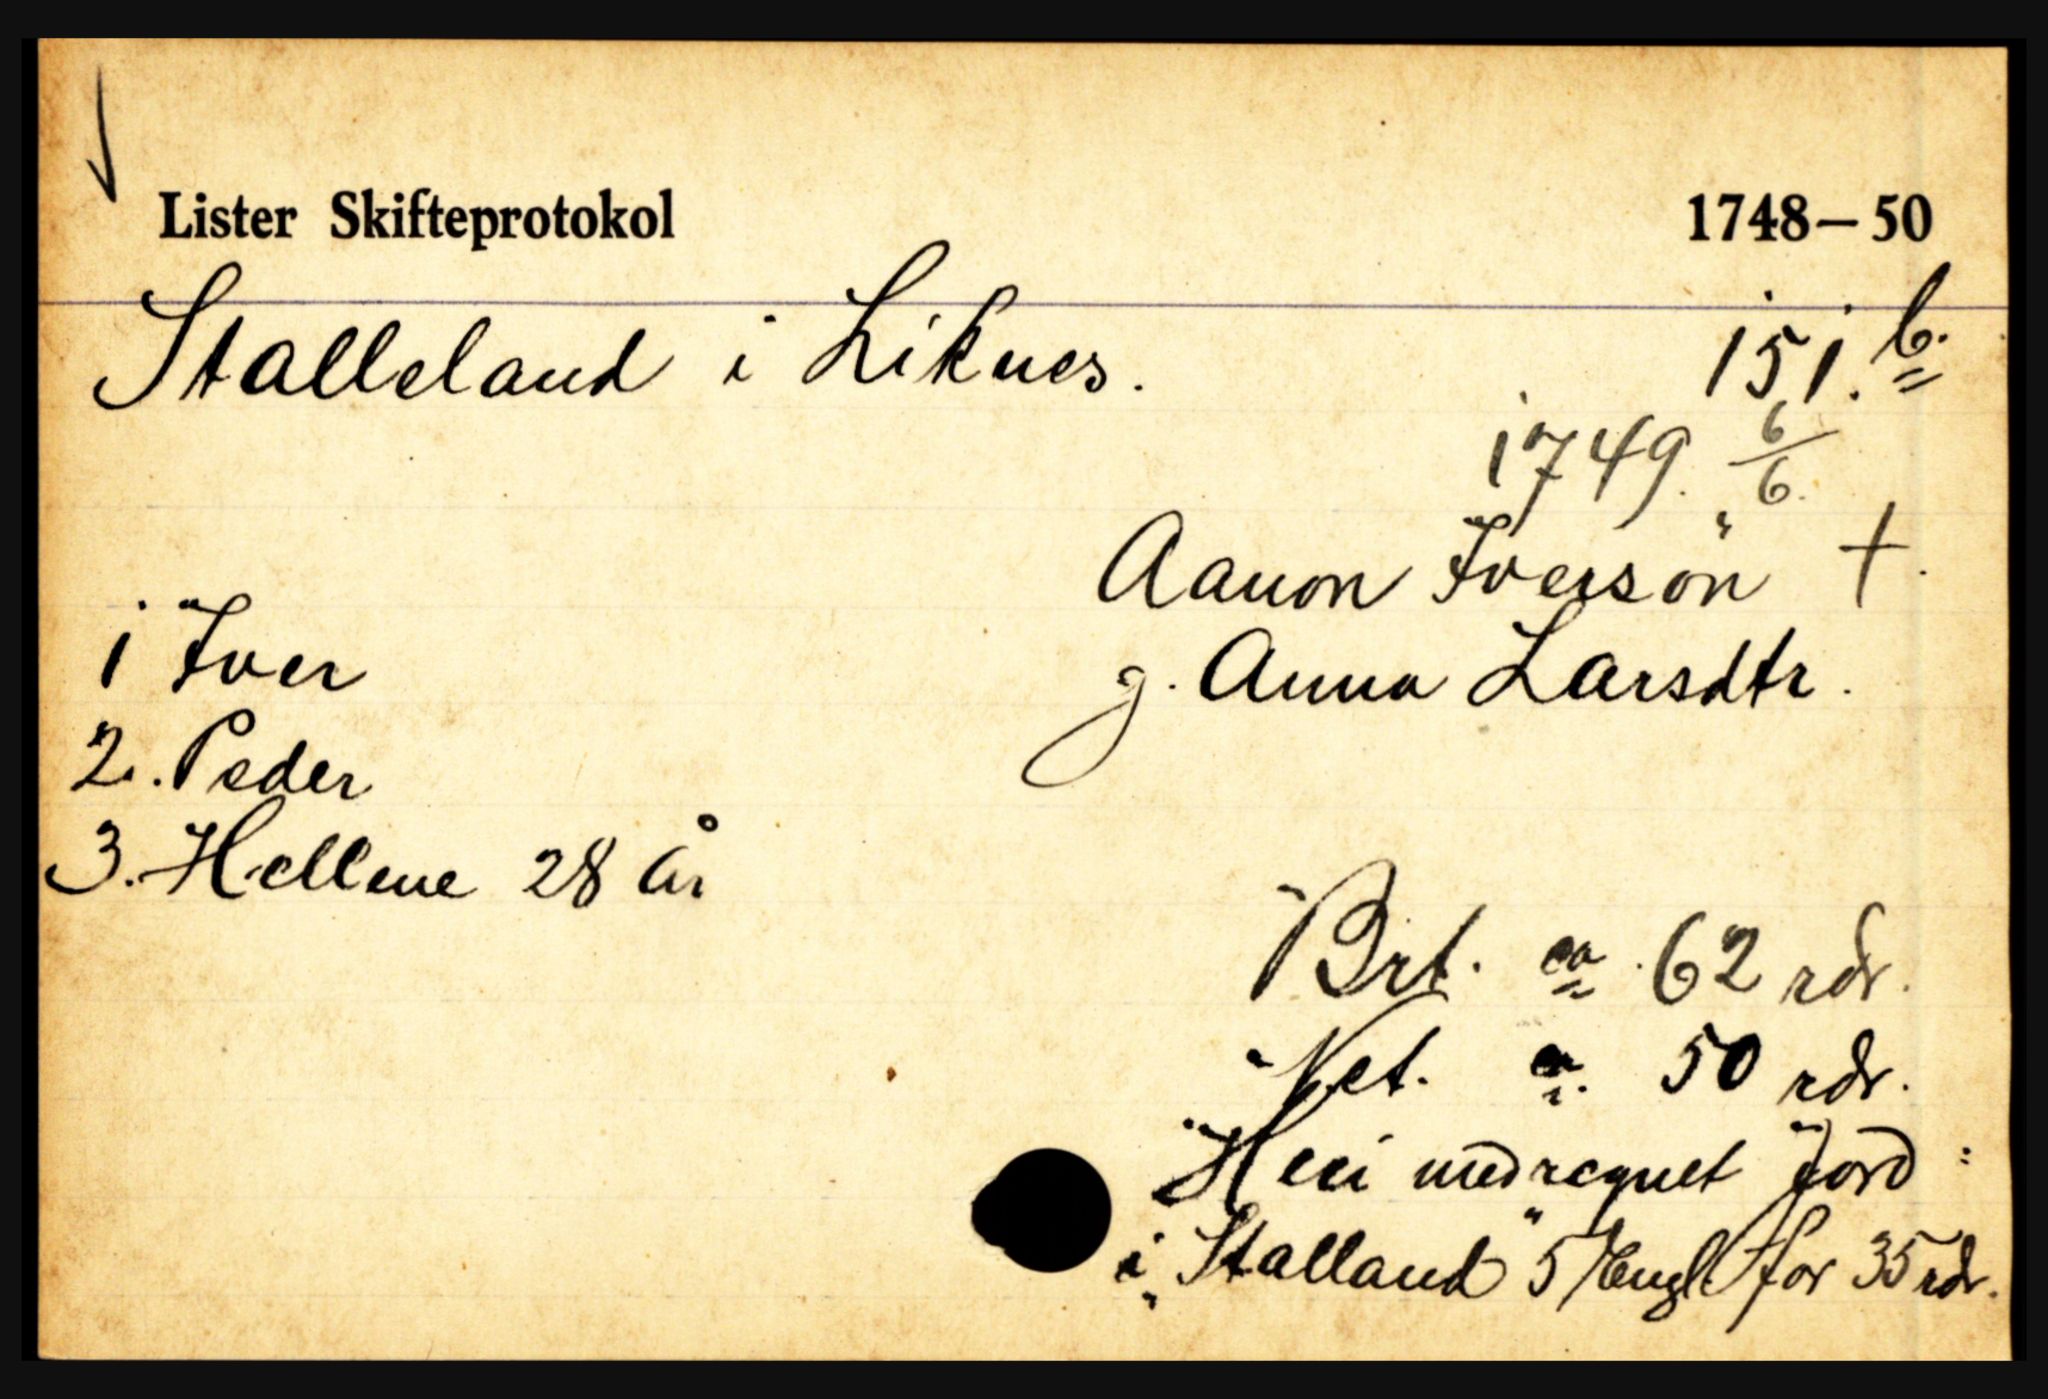 Lister Skifteprotokol 1748-50
Stalleland i Liknes. 151.b.
1749. 6/6.
Aanon Iverson †.
g. Anna Larsdtr.
1 Iver
2. Peder
3. Hellene 28 år
Brt. ca. 62 rdr.
Net. ca. 50 rdr.
Heri medregnet Jord:
i „Stalland" 5 Engl for 35 rdr.